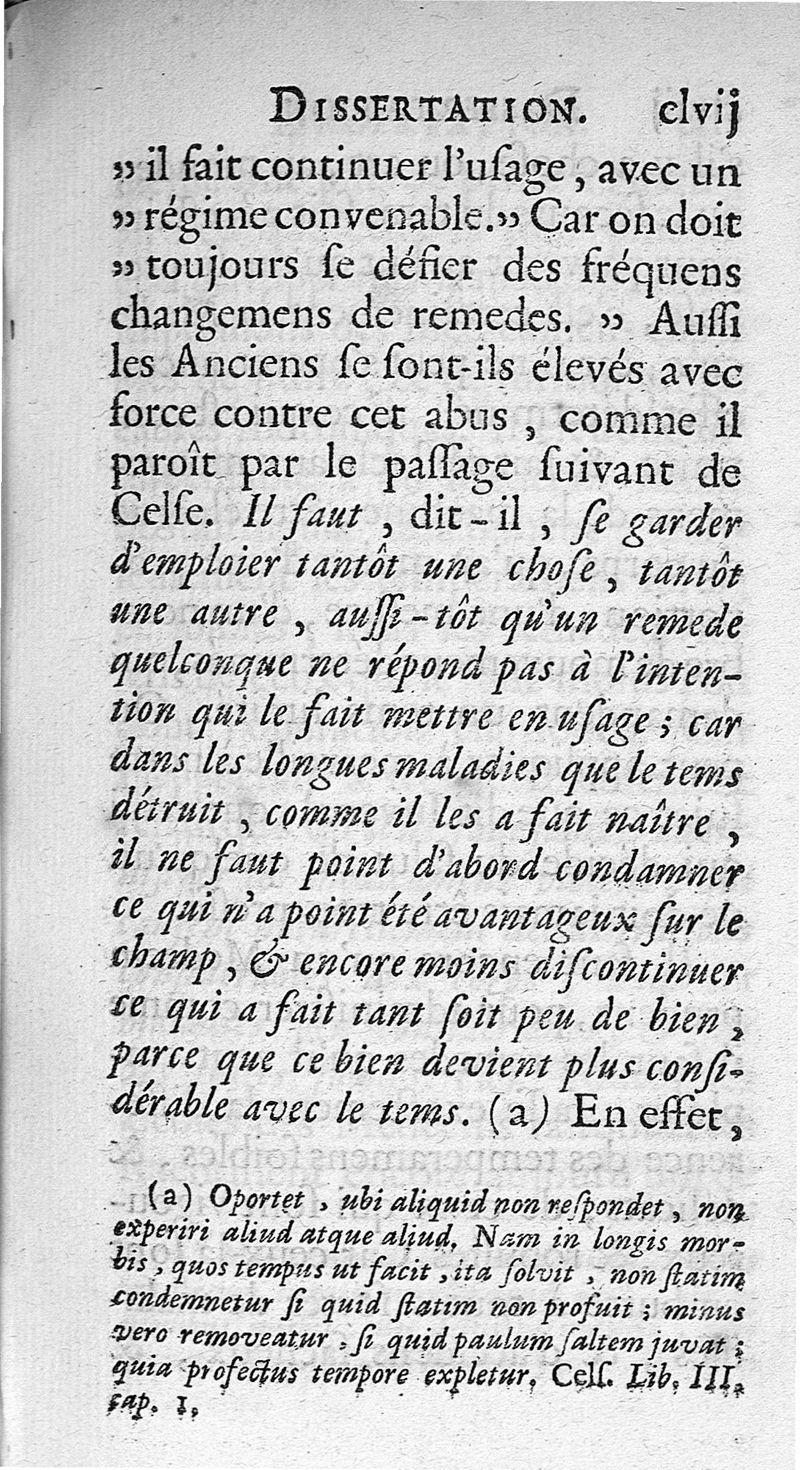 DISSERTATION. clvij
„ il fait continuer l'uſage, avec un
„ régime convenable.„ Car on doit
„ toujours ſe défier des fréquens
changemens de remedes. „ Auſſi
les Anciens ſe ſont-ils élevés avec
force contre cet abus, comme il
paroît par le paſſage ſuivant de
Celſe. Il faut, dit-il, ſe garder
d'emploier tantôt une choſe, tantôt
une autre, auſſi-tôt qu'un remede
quelconque ne répond pas à l'inten-
tion qui le fait mettre en uſage; car
dans les longues maladies que le tems
détruit, comme il les a fait naître,
il ne faut point d'abord condamner
ce qui n'a point été avantageux ſur le
champ, & encore moins diſcontinuer
ce qui a fait tant ſoit peu de bien,
parce que ce bien devient plus conſi-
dérable avec le tems. (a) En effet,
(a) Oportet, ubi aliquid non reſpondet, non
experiri aliud atque aliud. Nam in longis mor-
bis, quos tempus ut facit, ita ſolvit, non ſtatim
condemnetur ſi quid ſtatim non profuit; minus
vero removeatur, ſi quid paulum ſaltem juvat;
quia profectus tempore expletur. Celſ. Lib. III.
cap. 1.